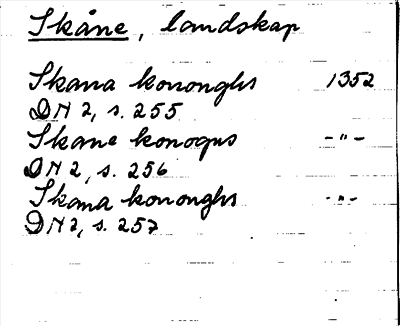 Skåne, landskap
Skana kononghs 1352
DN 2, s. 255
Skane konogns -"-
DN 2, s. 256
Skana kononghs -"-
DN 2, s. 257